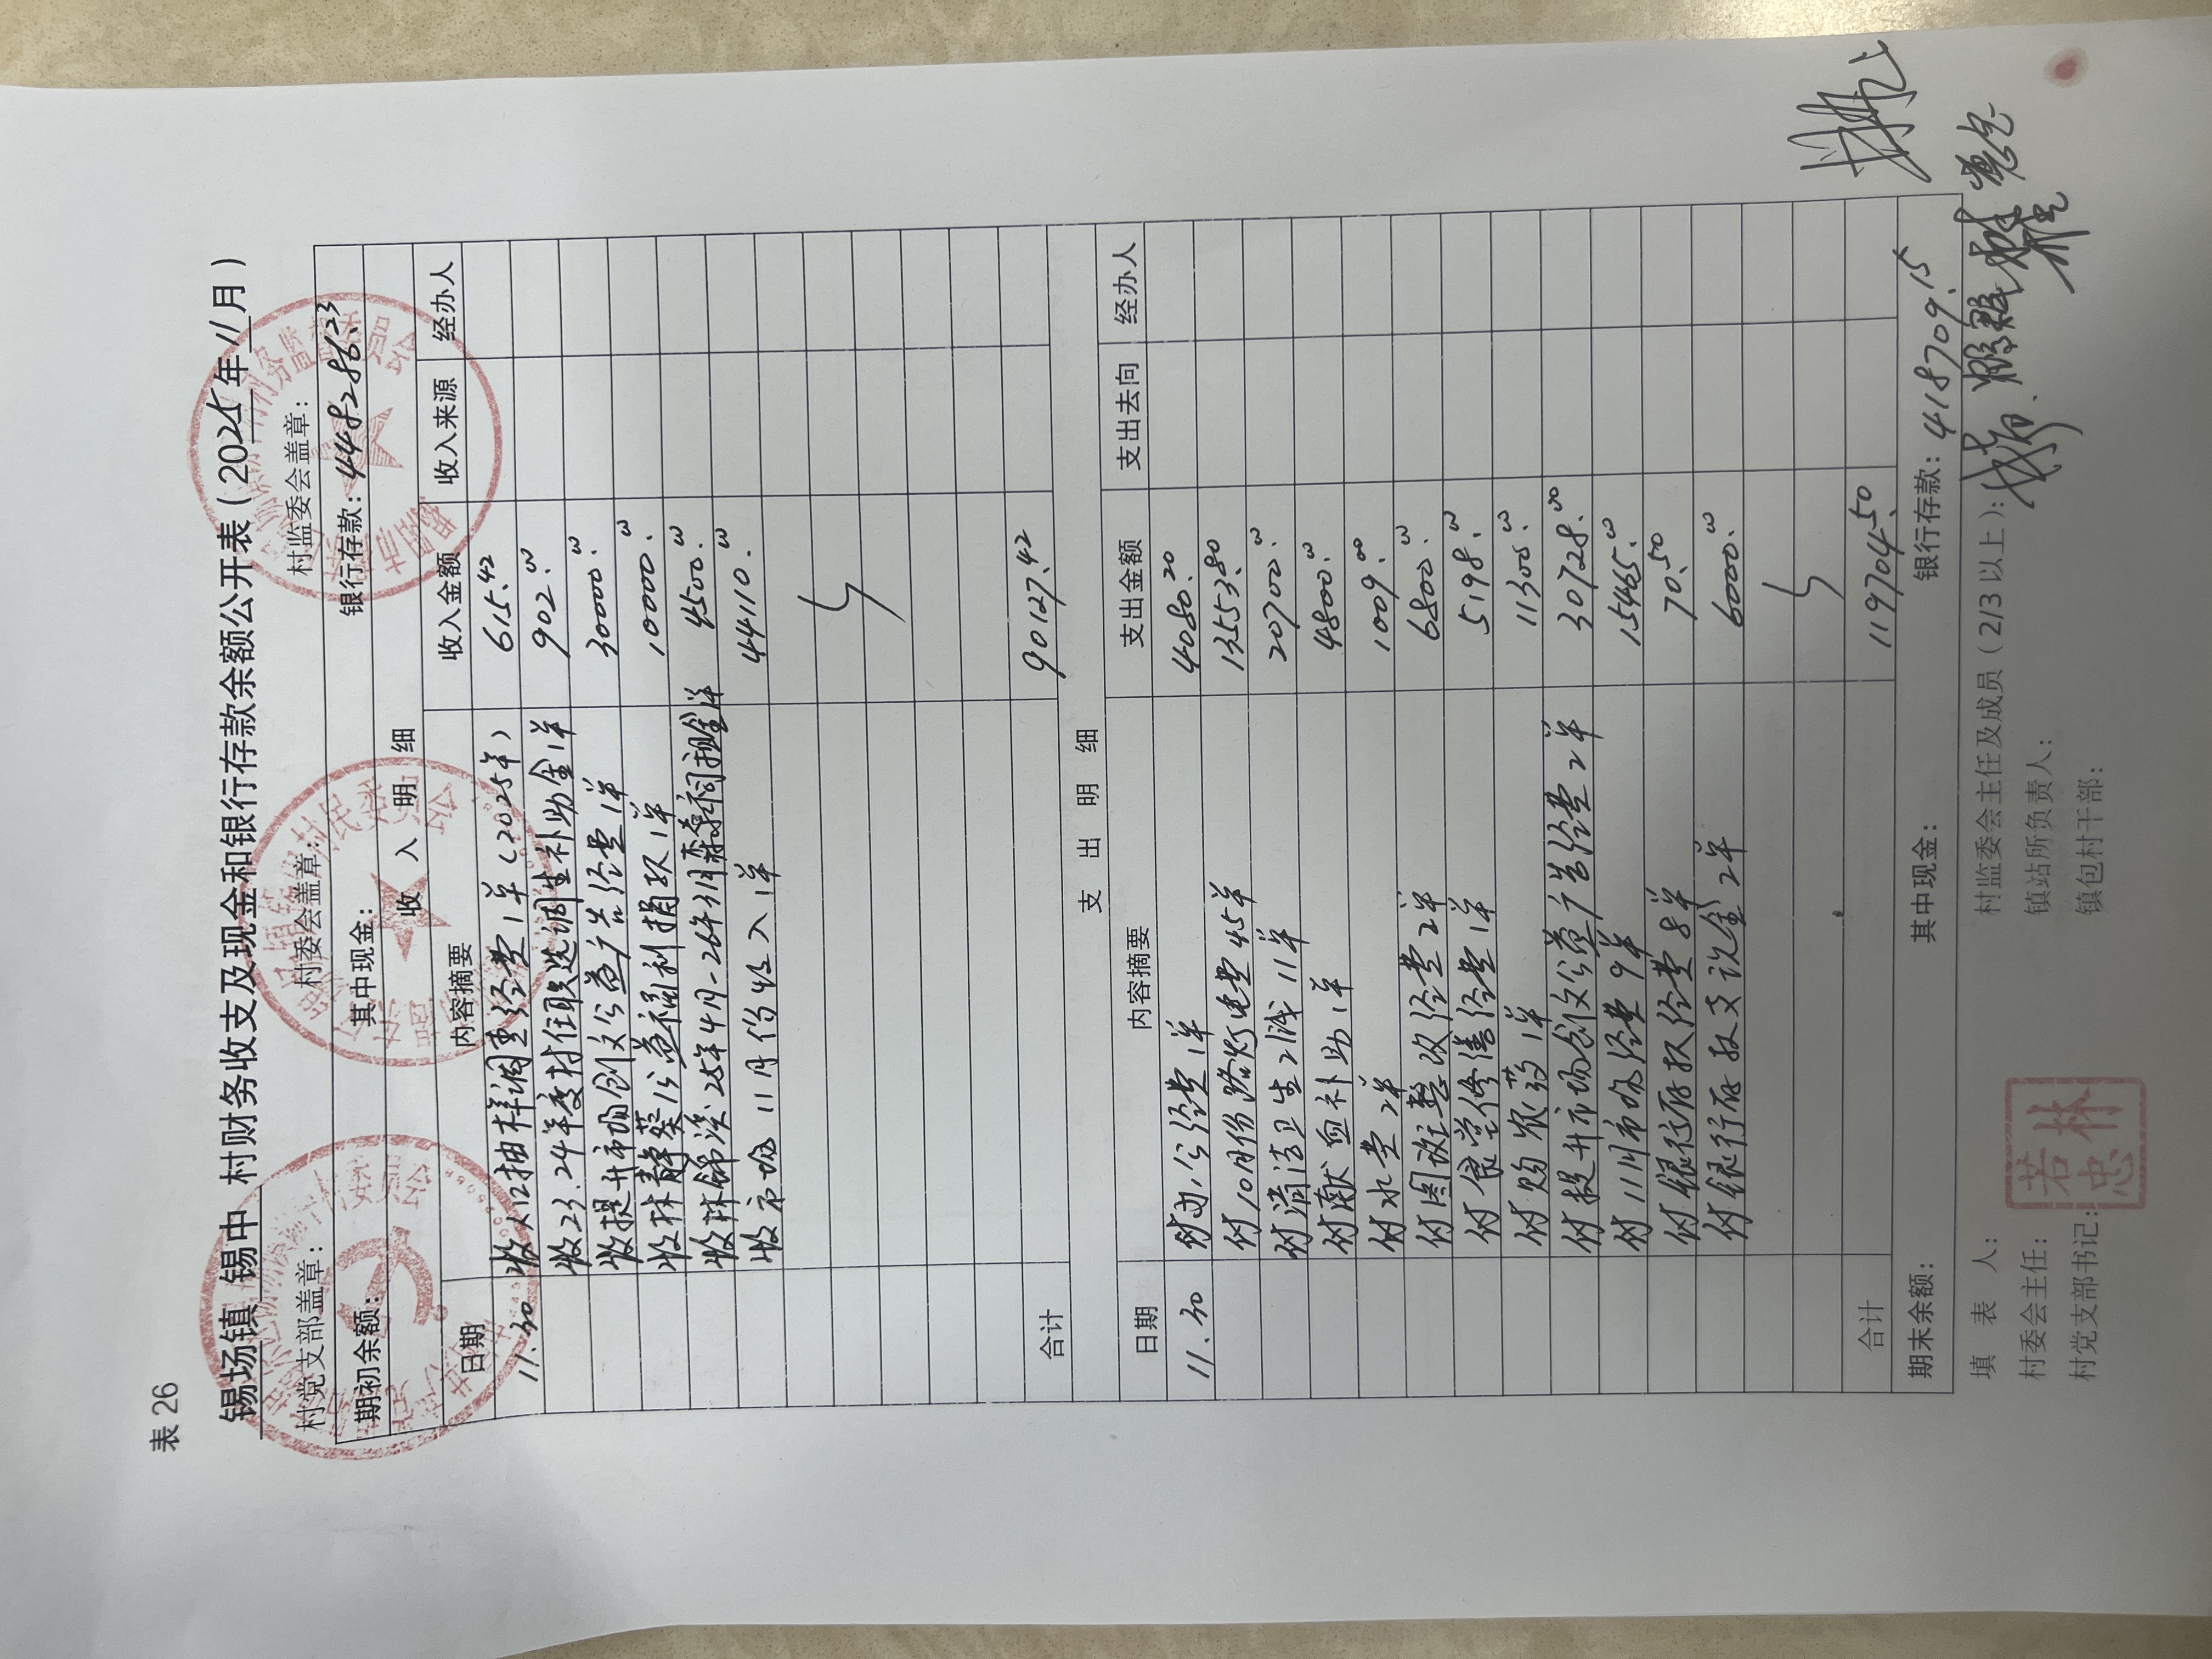 表 26
锡场镇 锡中 村财务收支及现金和银行存款余额公开表（2025年11月）
村党支部盖章： 村委会盖章： 村监委会盖章：
期初余额： 其中现金： 银行存款：448286.23
收 入 明 细
日期 内容摘要 收入金额 收入来源 经办人
11.30 收人口抽样调查经费1单（2025年） 615.42
收23.24年度村任职选调生补助金1单 902.00
收提升市场创文公益广告经费1单 30000.00
收林静葵公益福利捐款1单 10000.00
收林锦溪25年4月-26年3月 祠租金1单 4500.00
收市场11月份收入1单 44110.00
合计 90127.42
支 出 明 细
日期 内容摘要 支出金额 支出去向 经办人
11.30 付办公经费1单 4080.20
付10月份路灯电费45单 13553.80
付清洁卫生 11单 20700.00
付献血补助1单 4800.00
付水费2单 1009.00
付图斑整改经费2单 6800.00
付食堂修缮经费1单 5198.00
付购农药1单 11300.00
付提升市场创文公益广告经费2单 30728.00
付11月市场经费9单 15465.00
付银行存款经费8单 70.50
付银行存款 2单 6000.00
合计 119704.50
期末余额： 其中现金： 银行存款：418709.15
填 表 人： 村监委会主任及成员（2/3以上）：
村委会主任： 镇站所负责人：
村党支部书记： 镇包村干部：
若林
忠